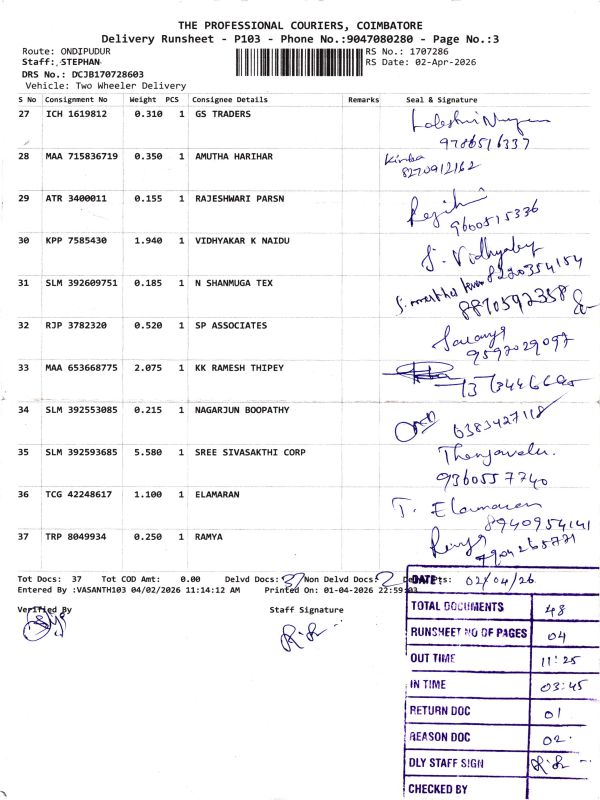 THE PROFESSIONAL COURIERS, COIMBATORE
Delivery Runsheet - P103 - Phone No.:9047080280 - Page No.:3
Route: ONDIPUDUR
RS No.: 1707286
Staff: STEPHAN
RS Date: 02-Apr-2026
DRS No.: DCJB170728603
Vehicle: Two Wheeler Delivery
S No Consignment No Weight PCS Consignee Details Remarks Seal & Signature
27 ICH 1619812 0.310 1 GS TRADERS
9786516337
28 MAA 715836719 0.350 1 AMUTHA HARIHAR
8270912162
29 ATR 3400011 0.155 1 RAJESHWARI PARSN
9600515336
30 KPP 7585430 1.940 1 VIDHYAKAR K NAIDU
8220354154
31 SLM 392609751 0.185 1 N SHANMUGA TEX
8870592358
32 RJP 3782320 0.520 1 SP ASSOCIATES
9597029097
33 MAA 653668775 2.075 1 KK RAMESH THIPEY
34 SLM 392553085 0.215 1 NAGARJUN BOOPATHY
6383427118
35 SLM 392593685 5.580 1 SREE SIVASAKTHI CORP
9360557740
36 TCG 42248617 1.100 1 ELAMARAN
T. Elamaran
8940954141
37 TRP 8049934 0.250 1 RAMYA
7904265771
Tot Docs: 37 Tot COD Amt: 0.00 Delvd Docs: Non Delvd Docs: 2
Entered By :VASANTH103 04/02/2026 11:14:12 AM Printed On: 01-04-2026 22:59:03
Verified By Staff Signature
DATE: 02/04/26
TOTAL DOCUMENTS 48
RUNSHEET NO OF PAGES 04
OUT TIME 11:25
IN TIME 03:45
RETURN DOC 01
REASON DOC 02
DLY STAFF SIGN
CHECKED BY